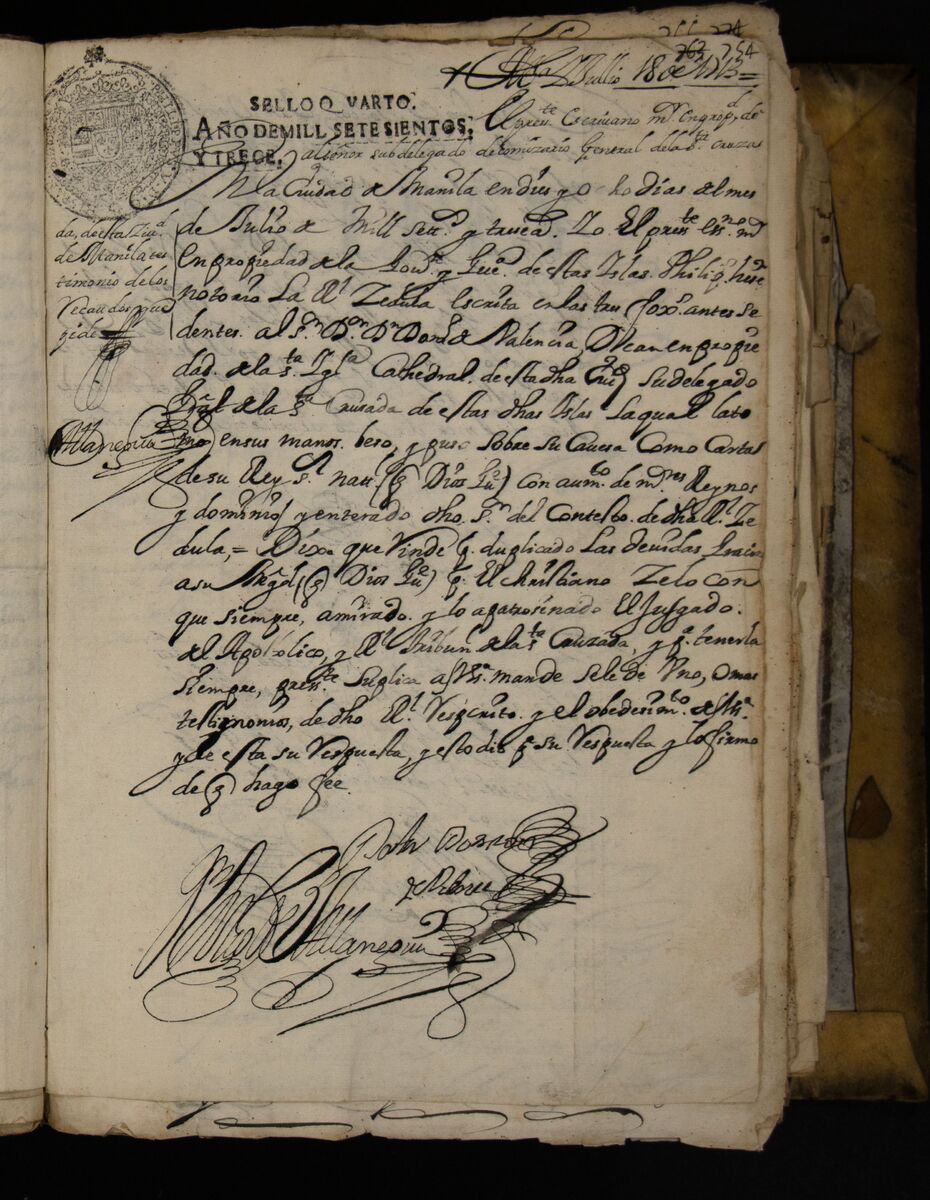 263 254
Julio 18 de 1713 =
SELLO QVARTO.
AÑO DE MILL SETESIENTOS,
Y TRECE.
El press.te Escrivano m.r en prop.d de
al señor subdelegado de comizario General de la s.ta cruzada
En la Ciudad de Manila en dies y ocho dias del mes
de Julio de Mill Sett.s y trece a.s Yo El press.te ess.no m.r
en propiedad de la Gov.on y Gue.a de estas Islas Philip.s hise
notorio La R.l Zedula Escrita en las tres foxas antese
dentes al S.r D.or D.n de Valencia, Dean en propie
dad de la s.ta Igl.a Cathedral de esta dha Ciu.d Subdelegado
Gral de la s.ta Crusada de estas dhas Islas la qual la to
mo en sus manos, beso, y puso sobre su Cavesa Como Carta
de su Rey y s.r nat.l (q Dios G.e) con aum.to de m.res Reynos
y dominios y enterado dho S.r del Contesto de dha R.l Ze
dula, = Dixo que Rinde p. duplicado Las devidas Gracias
a su Mag.d (q Dios G.e) p. El Xristiano Zelo con
que siempre, a mirado y lo a patrosinado El Jusgado
del Apostolico, y R.l Tribun.l de la s.ta Cruzada, y p.a tenerla
siempre, press.te Suplica a Su S.a mande se le de Uno, o mas
testimonios, de dho R.l Rescrito y el obedesim.to de Su S.a
y de esta su Respuesta, y esto dio p.r su Respuesta y lo firmo
de q hago fee
da, de esta Ziu.d
de Manila tes
timonio de los
Recaudos que
pide
Villanueva
Villanueva